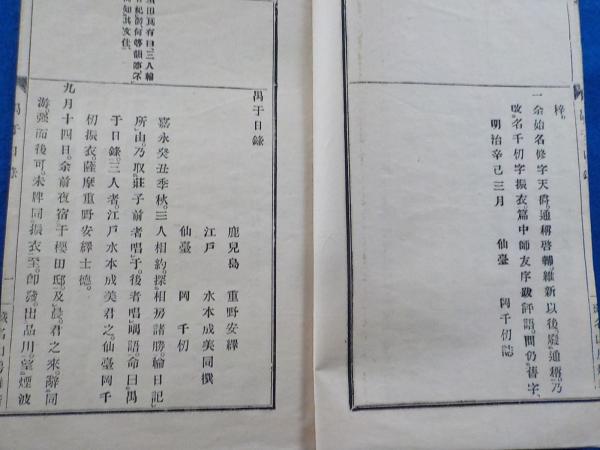 梓。
一余始名修字天爵。通稱啓輔。維新以後。廢通稱。乃
改名千仞字振衣。篇中師友序跋評語。間仍舊字。
明治辛巳三月　仙臺　岡千仞誌
禺于日錄
鹿兒島　重野安繹
江戶　水本成美同撰
仙臺　岡千仞
嘉永癸丑季秋。三人相約。探相房諸勝。輪日記
所由。乃取莊子前者唱于。後者唱喁語。命曰禺
于日錄。三人者。江戶水本成美君之。仙臺岡千
仞振衣。薩摩重野安繹士德。
九月十四日。余前夜宿于櫻田邸。及晨。君之來。辭同
游。强而後可。未牌同振衣至。卽發出品川。望煙波